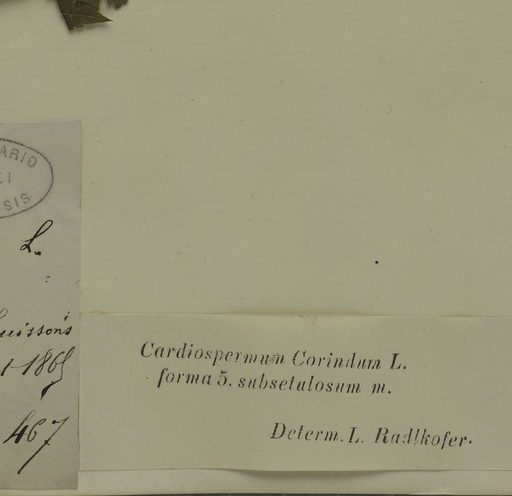 ARIO
SIS
L.
uissons
1-1865
467
Cardiospermum Corindum L.
forma 5. subsetulosum m.
Determ. L. Radlkofer.